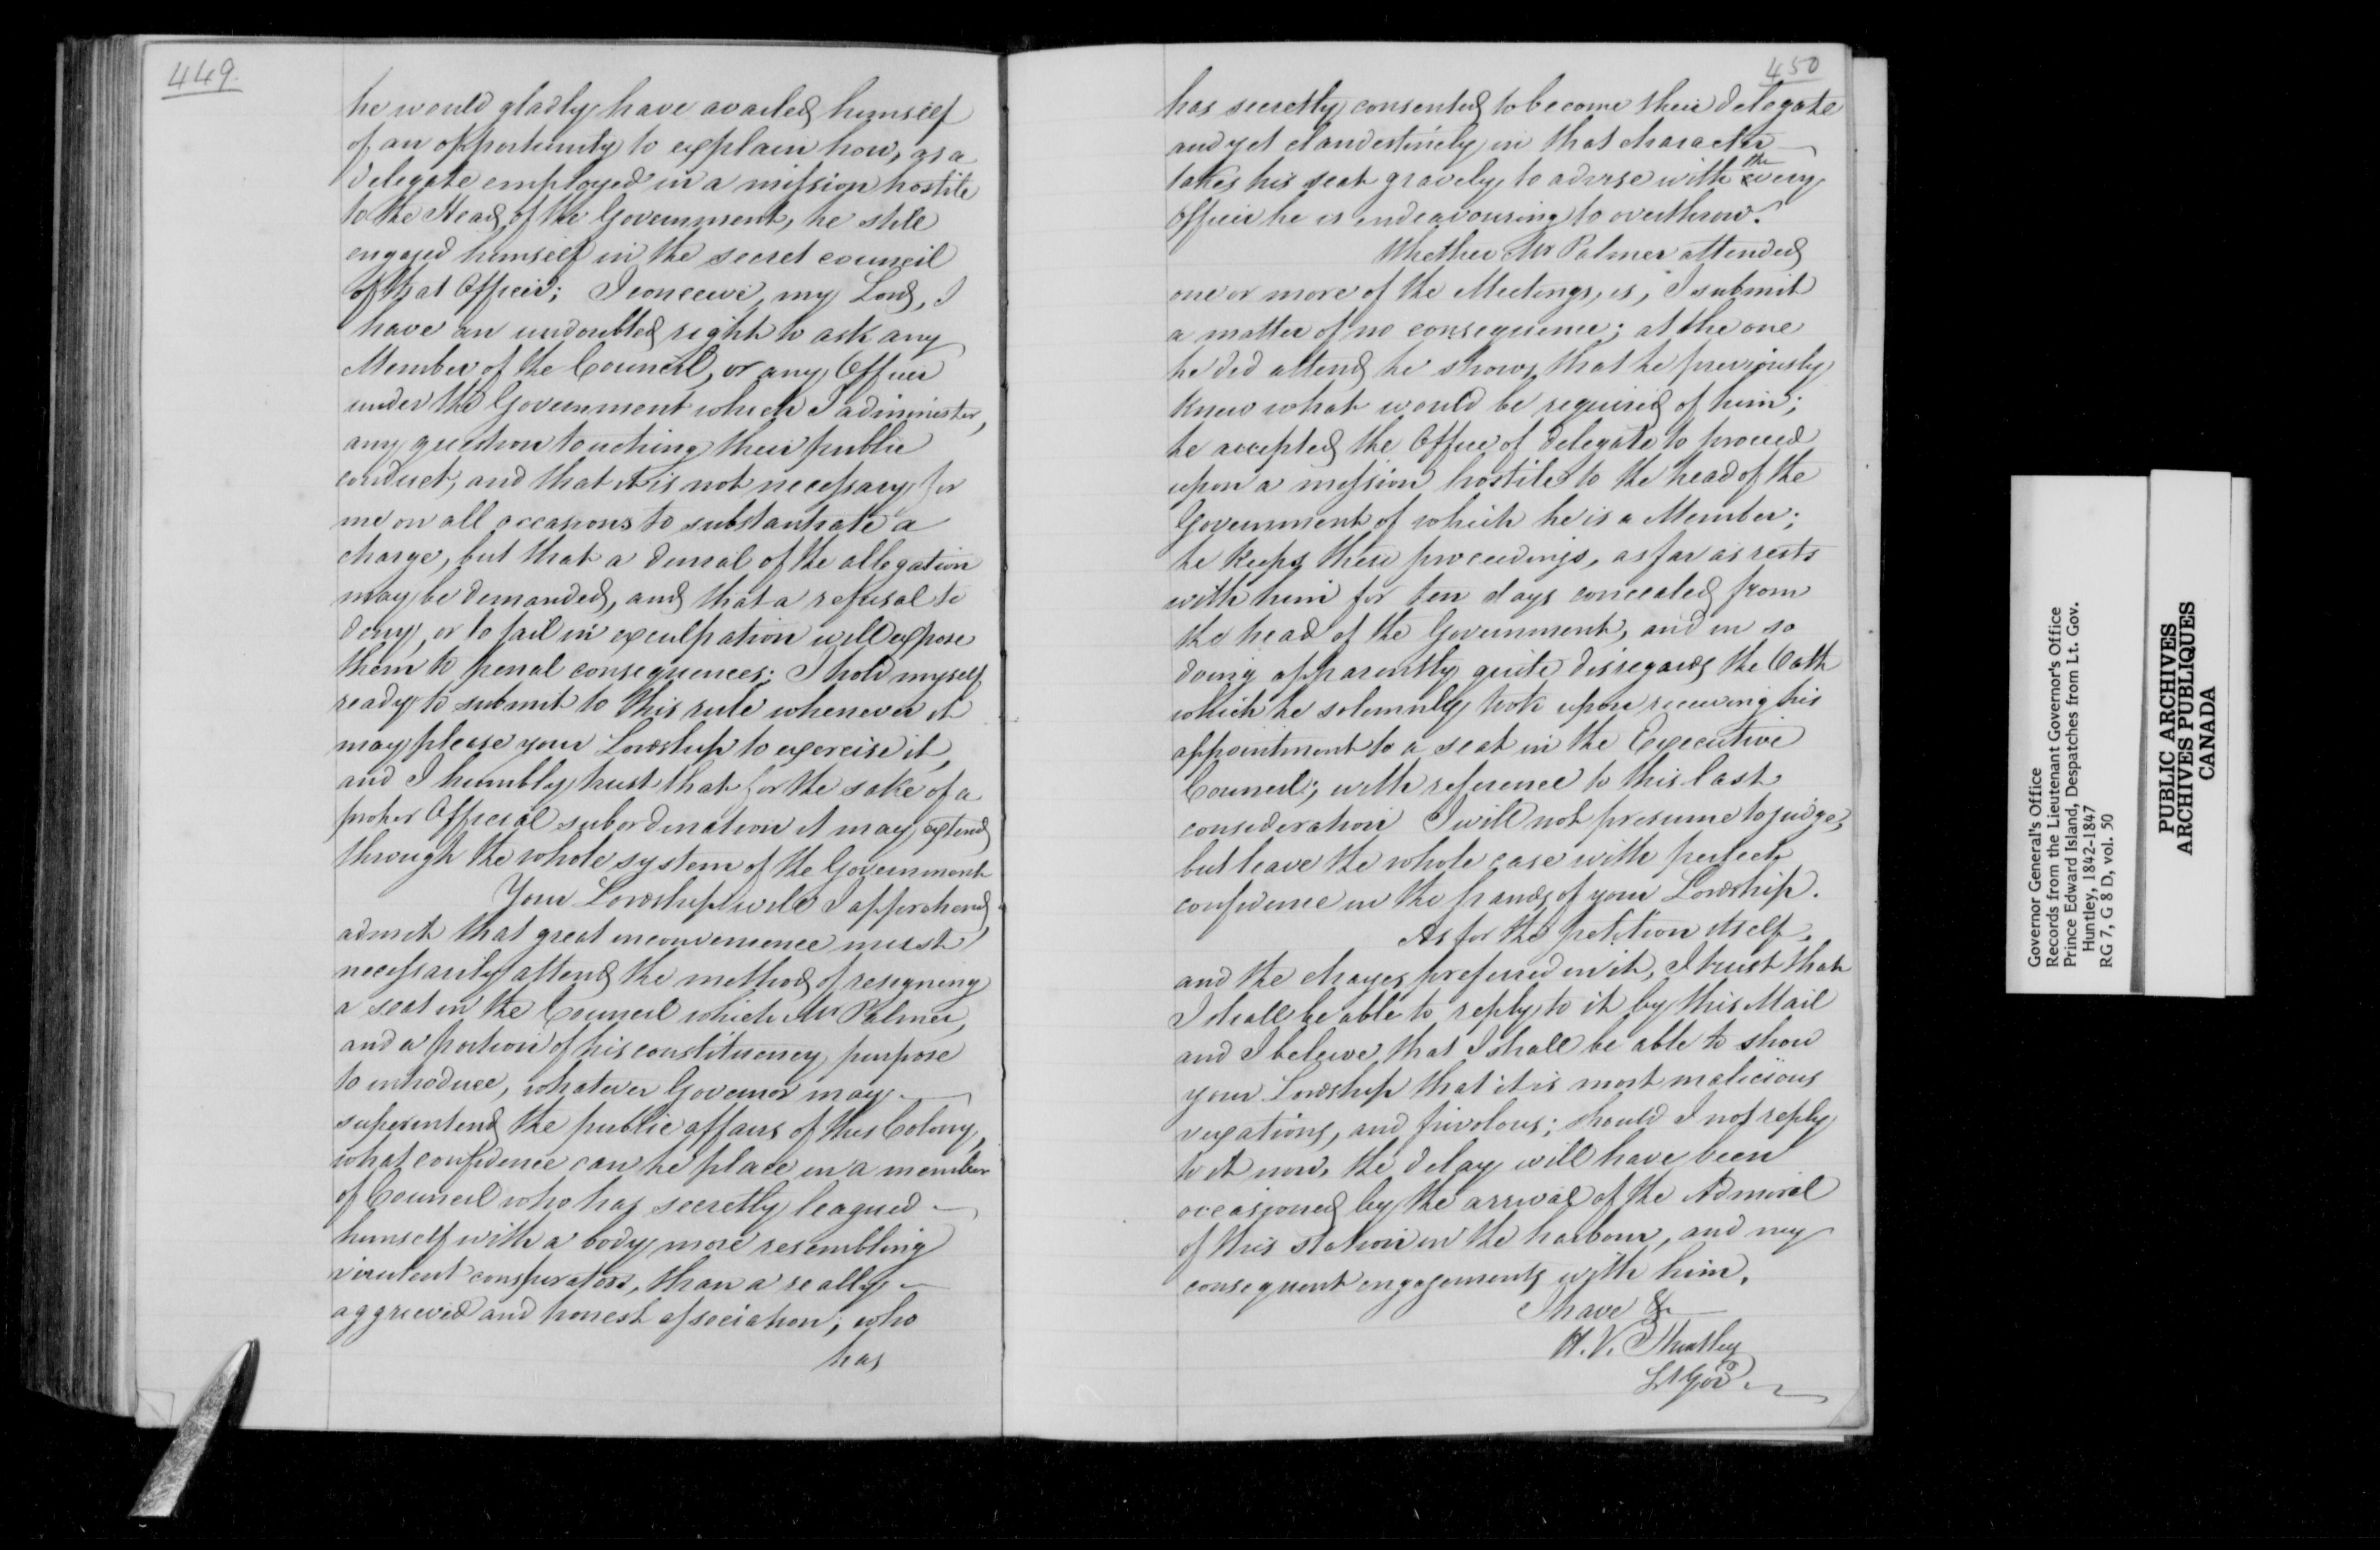 449.
he would gladly have availed himself
of an opportunity to explain how, as a
delegate employed in a mission hostile
to the Head of the Government, he still
engaged himself in the secret council
of that Officer; I conceive, my Lord, I
have an undoubted right to ask any
Member of the Council, or any Officer
under the Government which I administer,
any question touching their public
conduct, and that it is not necessary for
me on all occasions to substantiate a
charge, but that a denial of the allegation
may be demanded, and that a refusal to
deny, or to fail in exculpation will expose
them to penal consequences; I hold myself
ready to submit to this rule whenever it
may please your Lordship to exercise it,
and I humbly trust that for the sake of a
proper Official subordination it may extend
through the whole system of the Government
Your Lordship will I apprehend,
admit that great inconvenience must
necessarily attend the method of resigning
a seat in the Council which Mr Palmer,
and a portion of his constituency purpose
to introduce, whatever Governor may
superintend the public affairs of this Colony,
what confidence can he place in a member
of Council who has secretly leagued
himself with a body more resembling
virulent conspirators, than a really
aggrieved and honest association; who
has
450
has secretly consented to become their delegate
and yet clandestinely in that character
takes his seat gravely to advise with the very
Officer he is endeavouring to overthrow.
Whether Mr Palmer attended
one or more of the Meetings, is, I submit
a matter of no consequence; at the one
he did attend he shows that he previously
knew what would be required of him;
he accepted the Office of delegate to proceed
upon a mission hostile to the head of the
Government of which he is a Member;
he keeps these proceedings, as far as rests
with him for ten days concealed from
the head of the Government, and in so
doing apparently quite disregards the Oath
which he solemnly took upon receiving his
appointment to a seat in the Executive
Council; with reference to this last
consideration I will not presume to judge,
but leave the whole case with perfect
confidence in the hands of your Lordship.
As for the petition itself,
and the charges preferred in it, I trust that
I shall be able to reply to it by this Mail
and I believe that I shall be able to show
your Lordship that it is most malicious
vexatious, and frivolous; should I not reply
to it now, the delay will have been
occasioned by the arrival of the Admiral
of this station in the harbour, and my
consequent engagements with him.
I have &c
H. V. Huntley
Lt Gov
Governor General's Office
Records from the Lieutenant Governor's Office
Prince Edward Island, Despatches from Lt. Gov.
Huntley, 1842-1847
RG 7, G 8 D, vol. 50
PUBLIC ARCHIVES
ARCHIVES PUBLIQUES
CANADA